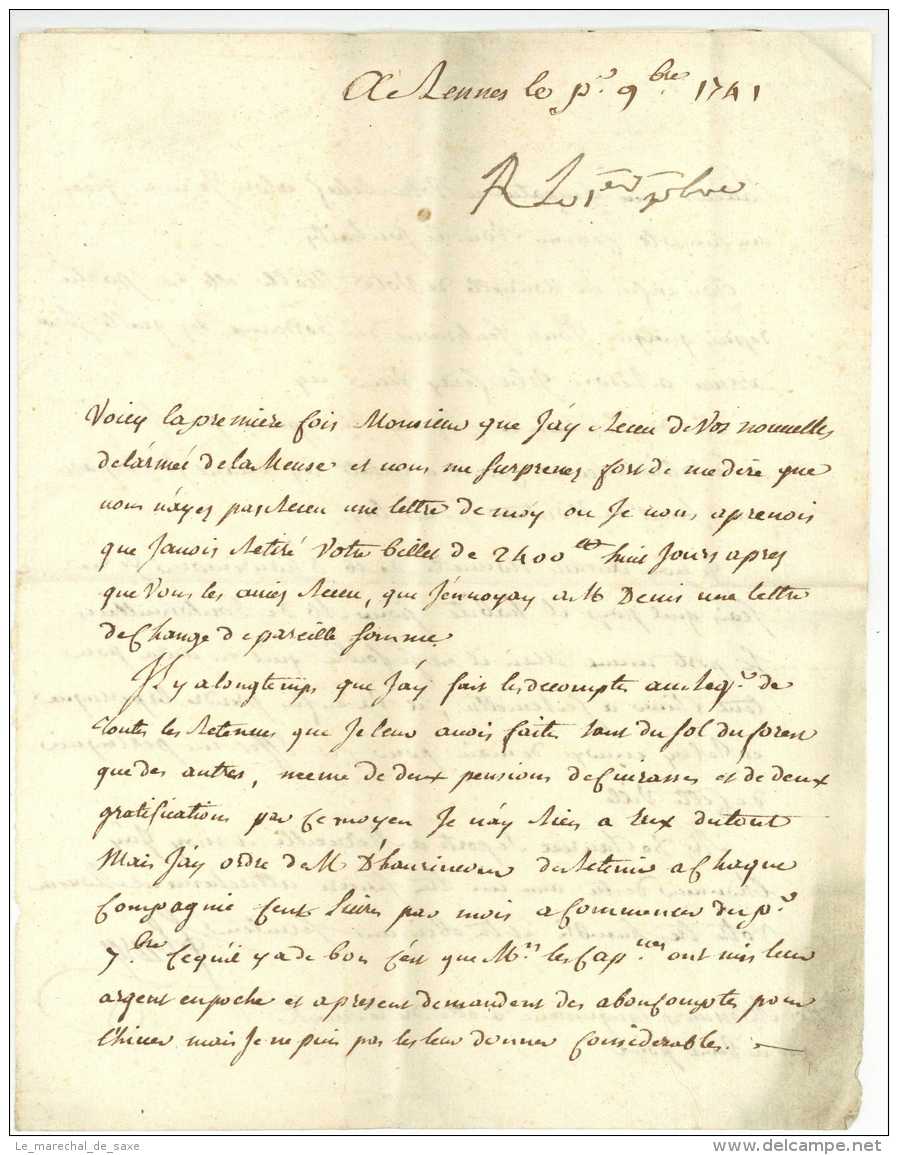 A Rennes le pr. 9bre 1741
R Le 1er xbre
Voicy la premiere fois Monsieur que J'áy Receu de Vos nouvelles
de l'ármée de la Meuse et vous me surprenes fort de me dire que
vous n'áyes pas Receu une lettre de moy ou Je vous aprenois
que J'avois Retiré Votre billet de 2400 huit Jours apres
que Vous les aviés Receu, que J'énvoyay a M Denis une lettre
de Change de pareille somme.
Il y a longtemps que J'áy fait les decomptes aux de
toutes les Retenues que Je leur avois faites tant du sol du forest
que des autres, meme de deux pensions de Cuirasses et de deux
gratifications par ce moyen Je n'áy Rien a Eux du tout
Mais J'áy ordre de M de Retenir a Chaque
Compagnie Cent Livres par mois a Commencer du pr.
7bre Ce qu'il y a de bon C'ést que Mrs les Capnes ont mis leur
argent en poche et a present demandent des a bon Comptes pour
L'hiver mais Je ne puis pas les leur donner Considerables.
Le_marechal_de_saxe
delcampe.net